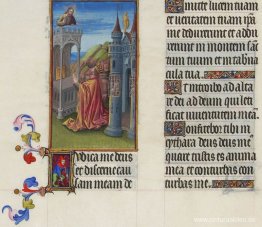 Iudica me deus
et discerne cau
sam meam de
Emitte lucem tuam
et veritatem tuam ipsa
me deduxerunt et addu
xerunt in montem sanc
tum tuum et in taberna
cula tua.
Et introibo ad alta
re dei ad deum qui leti
ficat iuventutem meam.
Confitebor tibi in
cythara deus deus meus
quare tristis es anima
mea et quare con
turbas me.